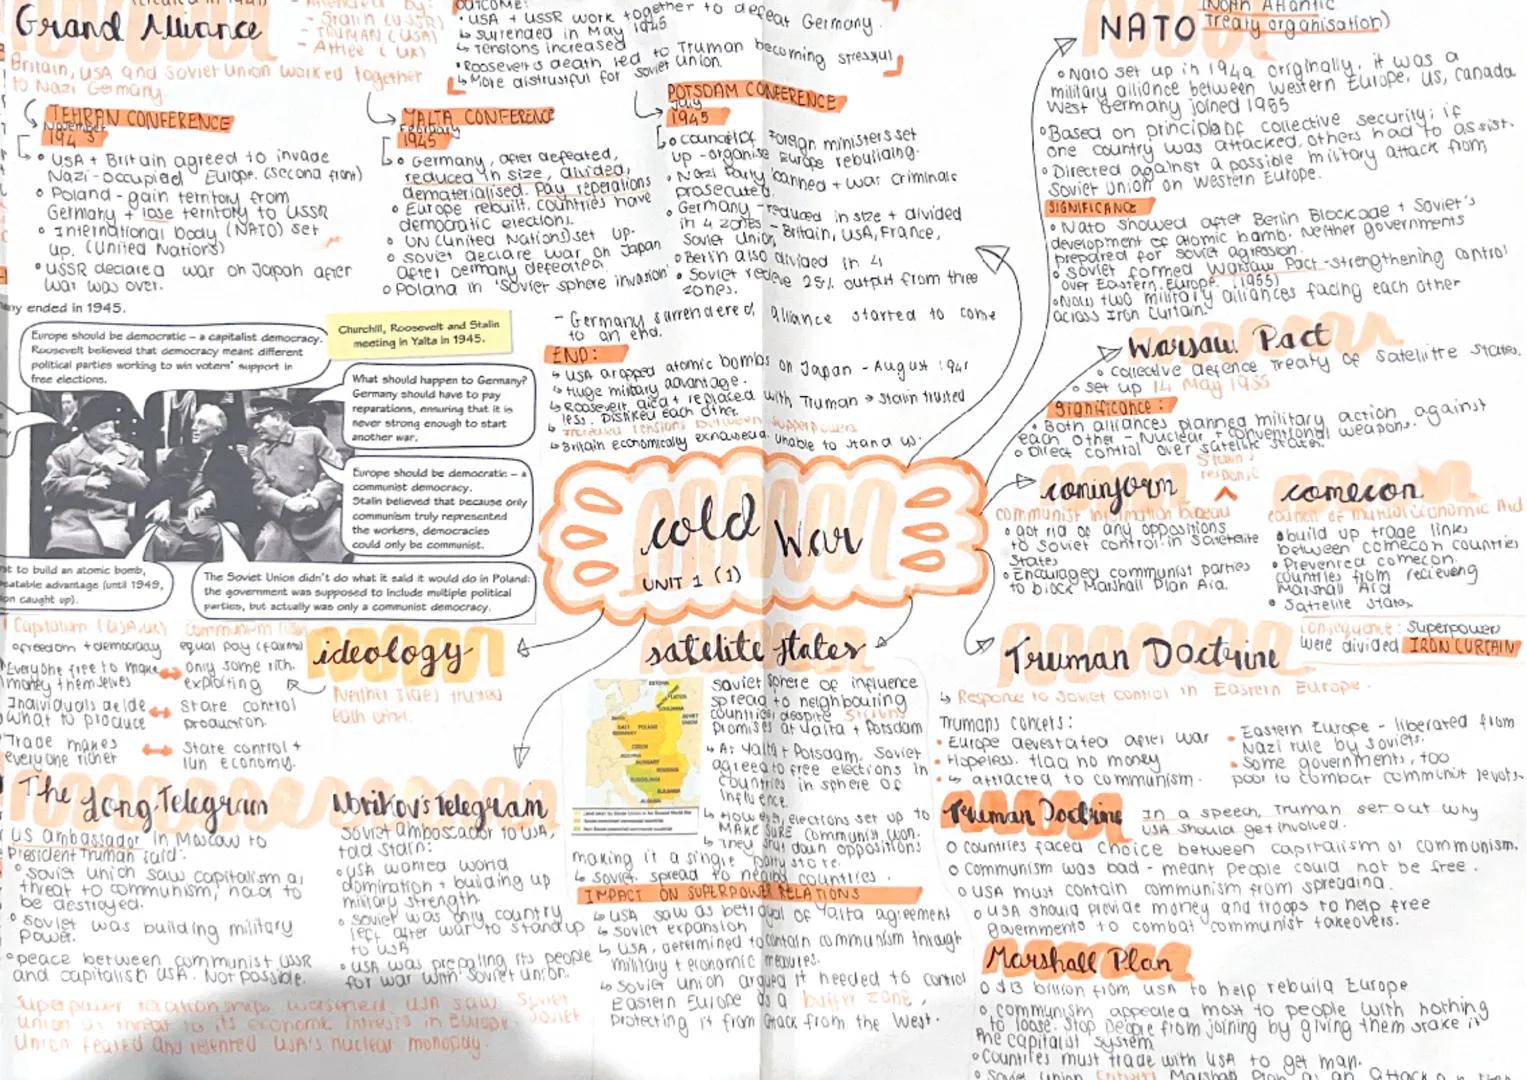 Grand Alliance
- Stalin (USSR)
- TRUMAN (USA)
- Attlee (UK)
Britain, USA and Soviet Union worked together
to Nazi Germany
TEHRAN CONFERENCE
November
1943
USA + Britain agreed to invade
Nazi-occupied Europe. (second front)
Poland - gain territory from
Germany + lose territory to USSR
International body (NATO) set
up. (United Nations)
USSR declared war on Japan after
war was over.
OUTCOME:
USA + USSR work together to defeat Germany.
surrended in May 1945
Tensions increased
Roosevelt's death led to Truman becoming stressful
More distrustful for Soviet Union.
YALTA CONFERENCE
February
1945
Germany, after defeated,
reduced in size, divided,
dematerialised. Pay reperations
Europe rebuilt. Countries have
democratic elections.
UN (United Nations) set up.
Soviet declare war on Japan
after Germany defeated.
Poland in 'Soviet sphere invasion'
POTSDAM CONFERENCE
July
1945
Council of Foreign ministers set
up - organise Europe rebuilding.
Nazi Party banned + war criminals
prosecuted.
Germany - reduced in size + divided
in 4 zones - Britain, USA, France,
Soviet Union
Berlin also divided in 4
Soviet recieve 25% output from three
zones.
- Germany surrendered, alliance started to come
to an end.
END:
USA dropped atomic bombs on Japan - August 1945
Huge military advantage.
Roosevelt died + replaced with Truman → Stalin trusted
less. Disliked each other.
Increased tensions between superpowers
Britain economically exhausted. Unable to stand up.
ny ended in 1945.
Europe should be democratic – a capitalist democracy.
Roosevelt believed that democracy meant different
political parties working to win voters' support in
free elections.
Churchill, Roosevelt and Stalin
meeting in Yalta in 1945.
What should happen to Germany?
Germany should have to pay
reparations, ensuring that it is
never strong enough to start
another war.
Europe should be democratic – a
communist democracy.
Stalin believed that because only
communism truly represented
the workers, democracies
could only be communist.
st to build an atomic bomb,
eatable advantage (until 1949,
on caught up).
The Soviet Union didn't do what it said it would do in Poland:
the government was supposed to include multiple political
parties, but actually was only a communist democracy.
cold War
UNIT 1 (1)
NATO (North Atlantic
Treaty organisation)
Nato set up in 1949 originally, it was a
military alliance between Western Europe, US, Canada
West Germany joined 1955
Based on principle of collective security; if
one country was attacked, others had to assist.
Directed against a possible military attack from
Soviet Union on Western Europe.
SIGNIFICANCE
Nato showed after Berlin Blockade + Soviet's
development of atomic bomb. Neither governments
prepared for Soviet agression.
Soviet formed Warsaw Pact - strengthening control
over Eastern Europe. (1955)
Now two military alliances facing each other
across Iron Curtain.
Warsaw Pact
collective defence treaty of satellite states.
set up 14 May 1955
Significance:
Both alliances planned military action against
each other - Nuclear + conventional weapons.
Direct control over satellite states.
Stalin's
cominform
communist information bureau
got rid of any oppositions
to Soviet control in satetelite
states
Encouraged communist parties
to block Marshall Plan Aid.
comecon
council of mutual economic Aid
build up trade links
between comecon countries
Prevented comecon
countries from recieving
Marshall Aid
Satellite states
ideology
Capitalism (USA, UK)
freedom + democracy
Everyone free to make
money themselves
Individuals decide
what to produce
Trade makes
everyone richer
Communism
equal pay
only some rich.
exploiting
State control
production.
State control +
run economy.
Neither sides trusted
each other.
satelite states
Soviet sphere of influence
spread to neighbouring
countries, despite Stalin's
promises at Yalta + Potsdam
At Yalta + Potsdam, Soviet
agreed to free elections in
countries in sphere of
influence.
However, elections set up to
MAKE SURE communist won.
They shut down oppositions
making it a single party state.
Soviet spread to nearing countries.
IMPACT ON SUPERPOWER RELATIONS
USA saw as betrayal of Yalta agreement
Soviet expansion
USA, determined to contain communism through
military + economic measures.
Soviet Union argued it needed to control
Eastern Europe as a buffer zone,
protecting it from attack from the West.
Truman Doctrine
consequence: Superpower
were divided IRON CURTAIN
Response to Soviet control in Eastern Europe.
Trumans concers:
Europe devestated after war
Hopeless. Had no money
attracted to communism.
Eastern Europe - liberated from
Nazi rule by soviets.
Some governments, too
poor to combat communist
Truman Doctrine
In a speech, Truman set out why
USA should get involved.
Countries faced choice between capitalism or communism.
Communism was bad - meant people could not be free.
USA must contain communism from spreading.
USA should provide money and troops to help free
governments to combat communist takeovers.
Marshall Plan
$13 billion from USA to help rebuild Europe
communism appealed most to people with nothing
to loose. Stop people from joining by giving them stake in
the capitalist system
Countries must trade with USA to get man.
Soviet Union Marshall Plan as an attack
The Long Telegram
US ambassador in Moscow to
President Truman said:
Soviet Union saw capitalism as
threat to communism, had to
be destroyed.
Soviet was building military
power.
peace between communist USSR
and capitalist USA. Not possible.
Novikov's telegram
Soviet ambassador to USA,
told Stalin:
USA wanted world
domination + building up
military strength.
Soviet was only country
left after war to stand up
to USA
USA was preparing its people
for war with Soviet Union.
Superpower relationships worsened. USA saw Soviet
Union as threat to its economic intrests in Europe. Soviet
Union feared and resented USA's nuclear monopoly.